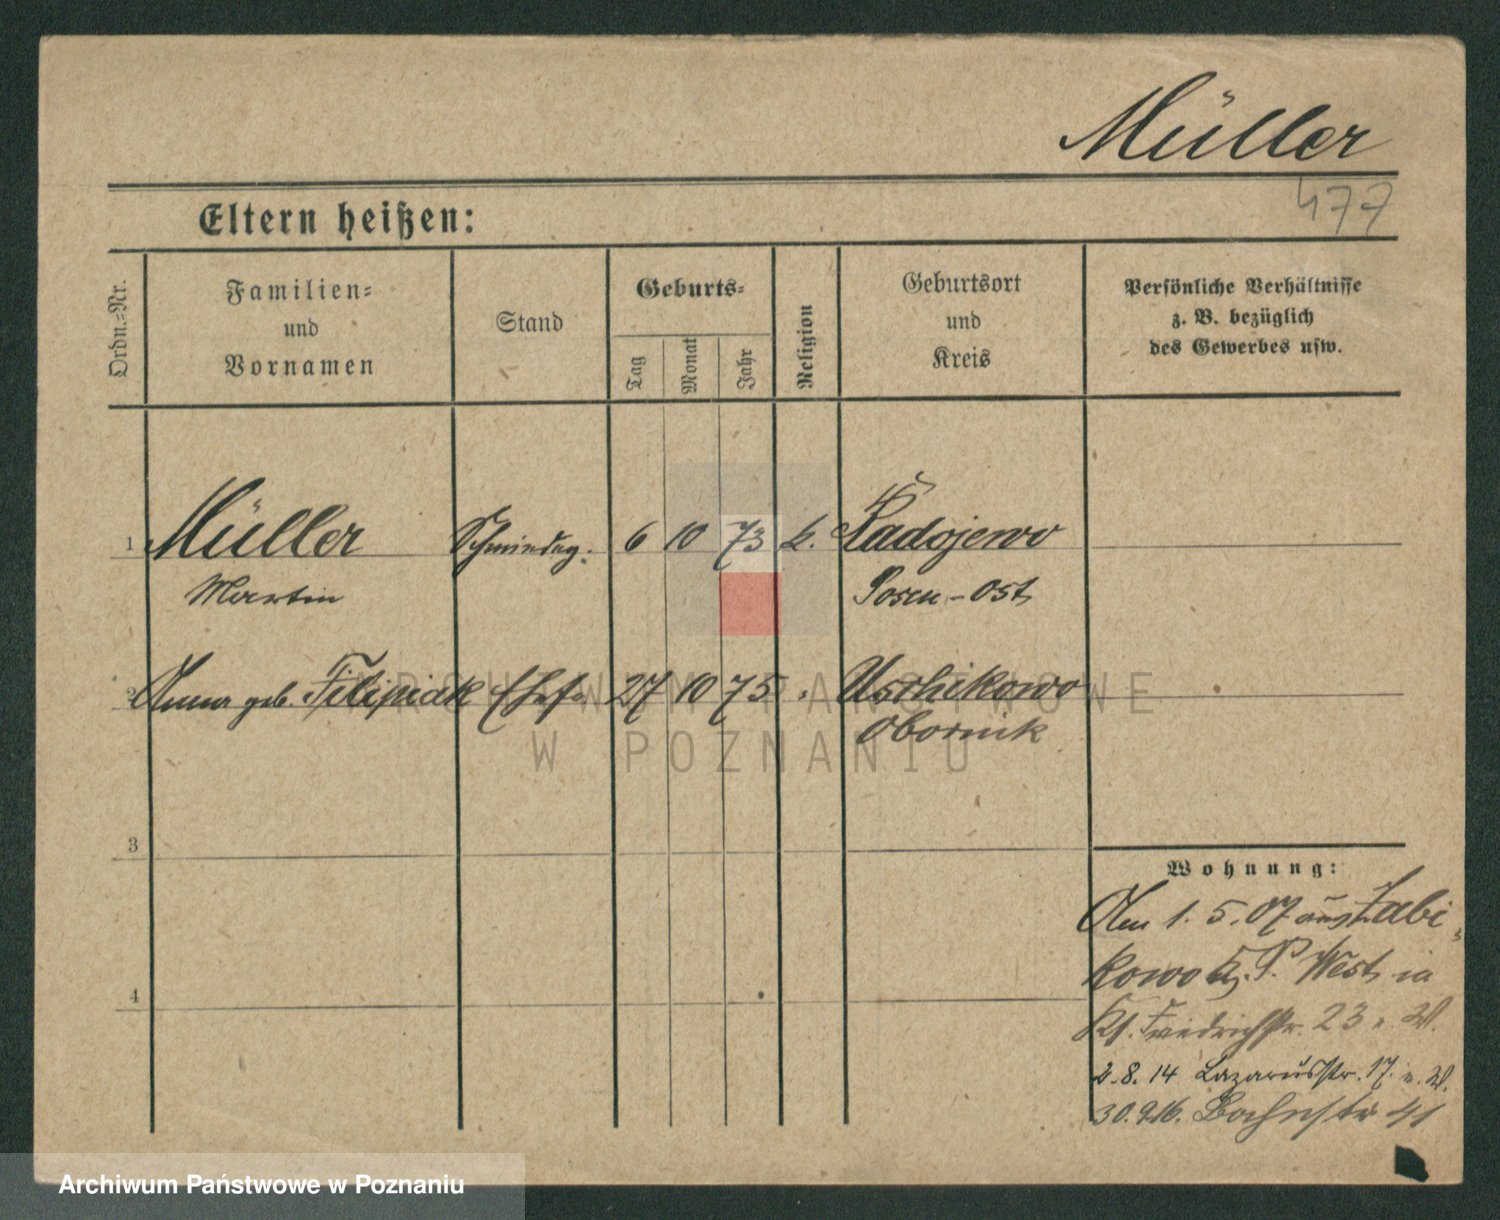 Müller
477
Eltern heißen:
Ordn.-Nr.
Familien-
und
Vornamen
Stand
Geburts-
Tag
Monat
Jahr
Religion
Geburtsort
und
Kreis
Persönliche Verhältnisse
z. B. bezüglich
des Gewerbes usw.
1 Müller 6 10 73 k. Radojewo
Martin Posen-Ost
2 Anna geb. Filipiak Ehefr. 27 10 75 Uschikowo
Obornik
ARCHIWUM PAŃSTWOWE
W POZNANIU
3
4
Wohnung:
Am 1.5.07 aus Zabi-
kowo P. West in
Friedrichstr. 23 n. W.
2.8.14 Lazarusstr. 17. n. W.
30.9.16.
Archiwum Państwowe w Poznaniu